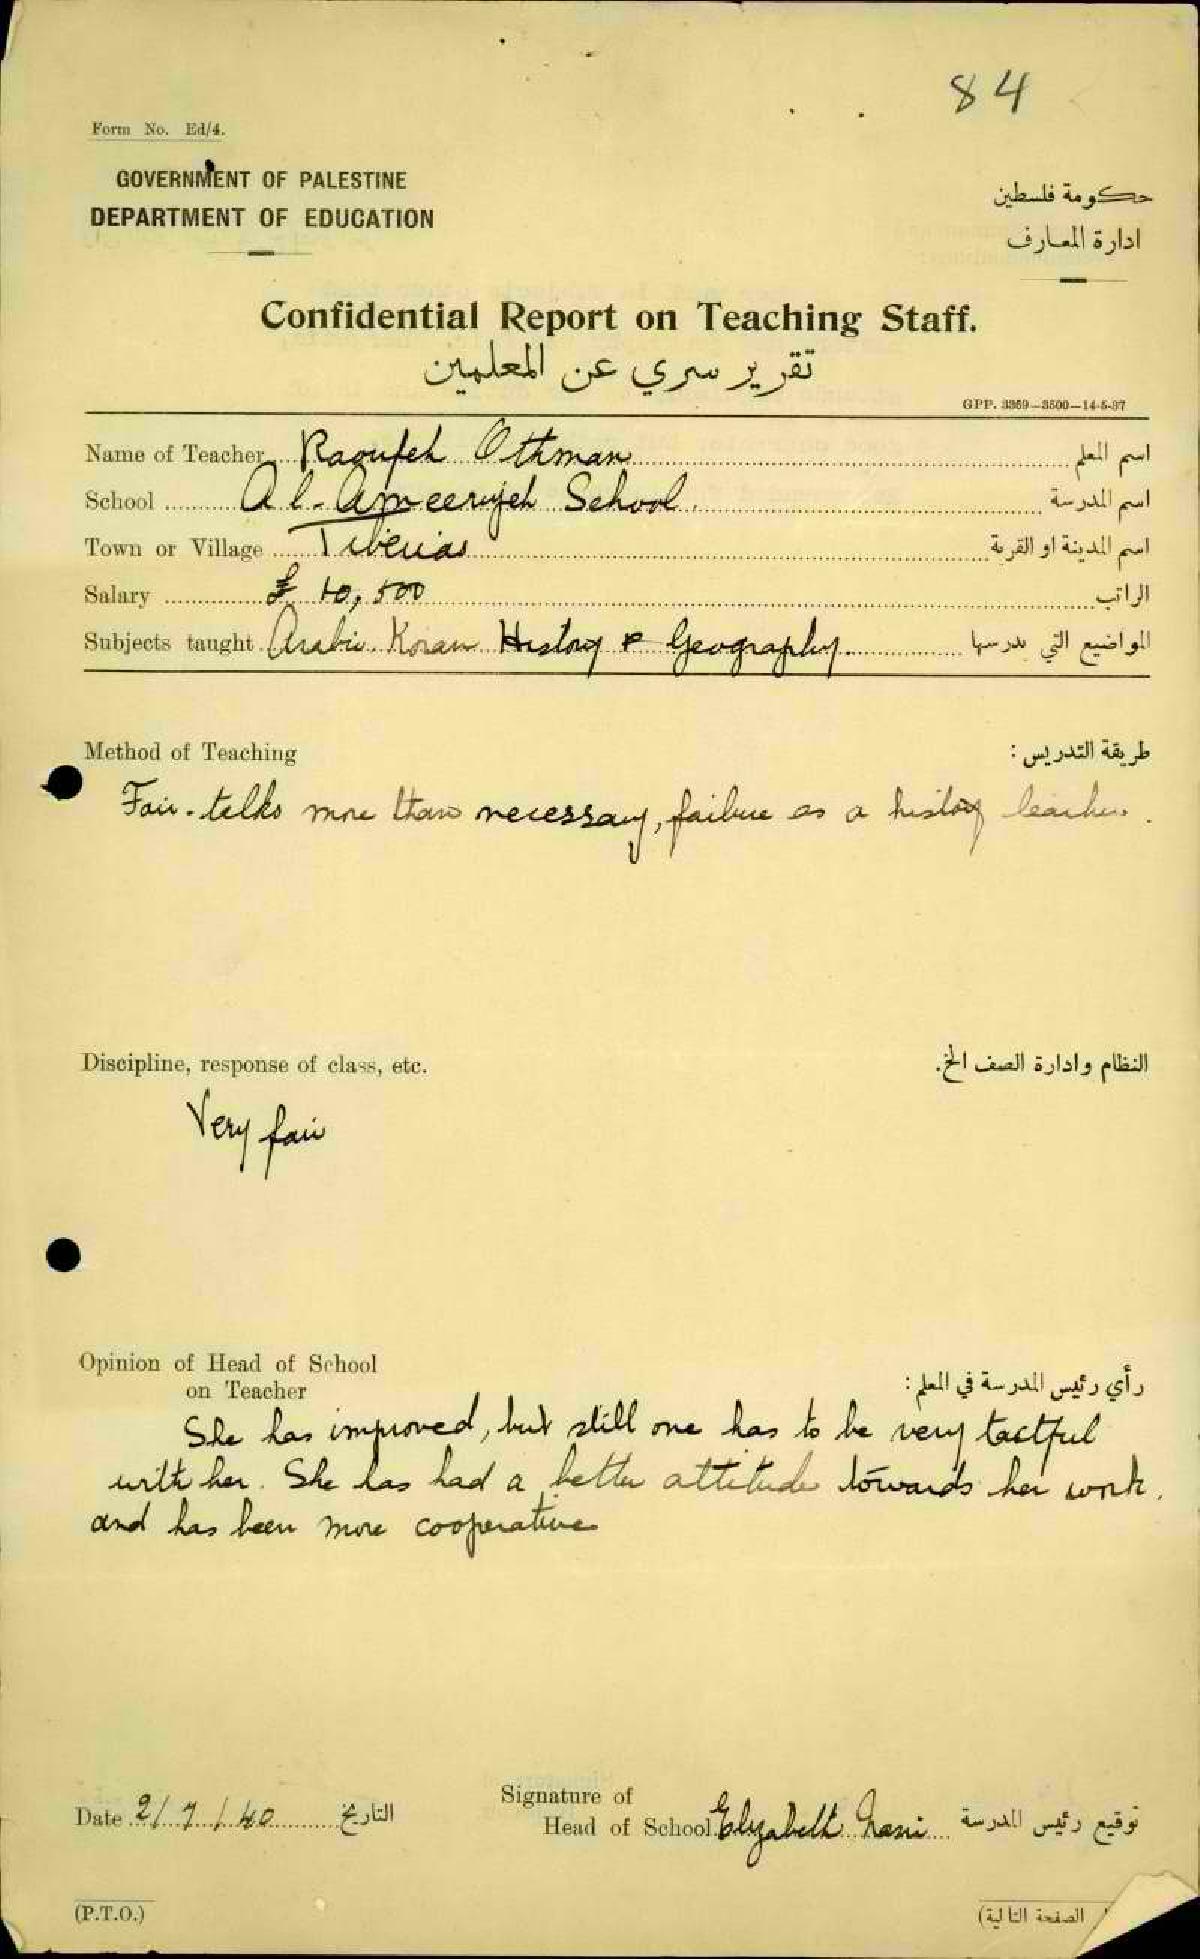 84
Form No. Ed/4.
GOVERNMENT OF PALESTINE
DEPARTMENT OF EDUCATION
حكومة فلسطين
ادارة المعارف
Confidential Report on Teaching Staff.
تقرير سري عن المعلمين
GPP. 3369—3500—14-5-37
Name of Teacher Raoufeh Othman اسم المعلم
School Al-Ameeriyeh School اسم المدرسة
Town or Village Tiberias اسم المدينة او القرية
Salary £ 10,500 الراتب
Subjects taught Arabic. Koran History & Geography المواضيع التي يدرسها
Method of Teaching طريقة التدريس :
Fair - talks more than necessary, failure as a history teacher.
Discipline, response of class, etc. النظام وادارة الصف الخ.
Very fair
Opinion of Head of School
on Teacher رأي رئيس المدرسة في المعلم :
She has improved, but still one has to be very tactful
with her. She has had a better attitude towards her work,
and has been more cooperative
Date 2/7/40 التاريخ
Signature of
Head of School Elizabeth توقيع رئيس المدرسة
(P.T.O.)
الصفحة التالية)